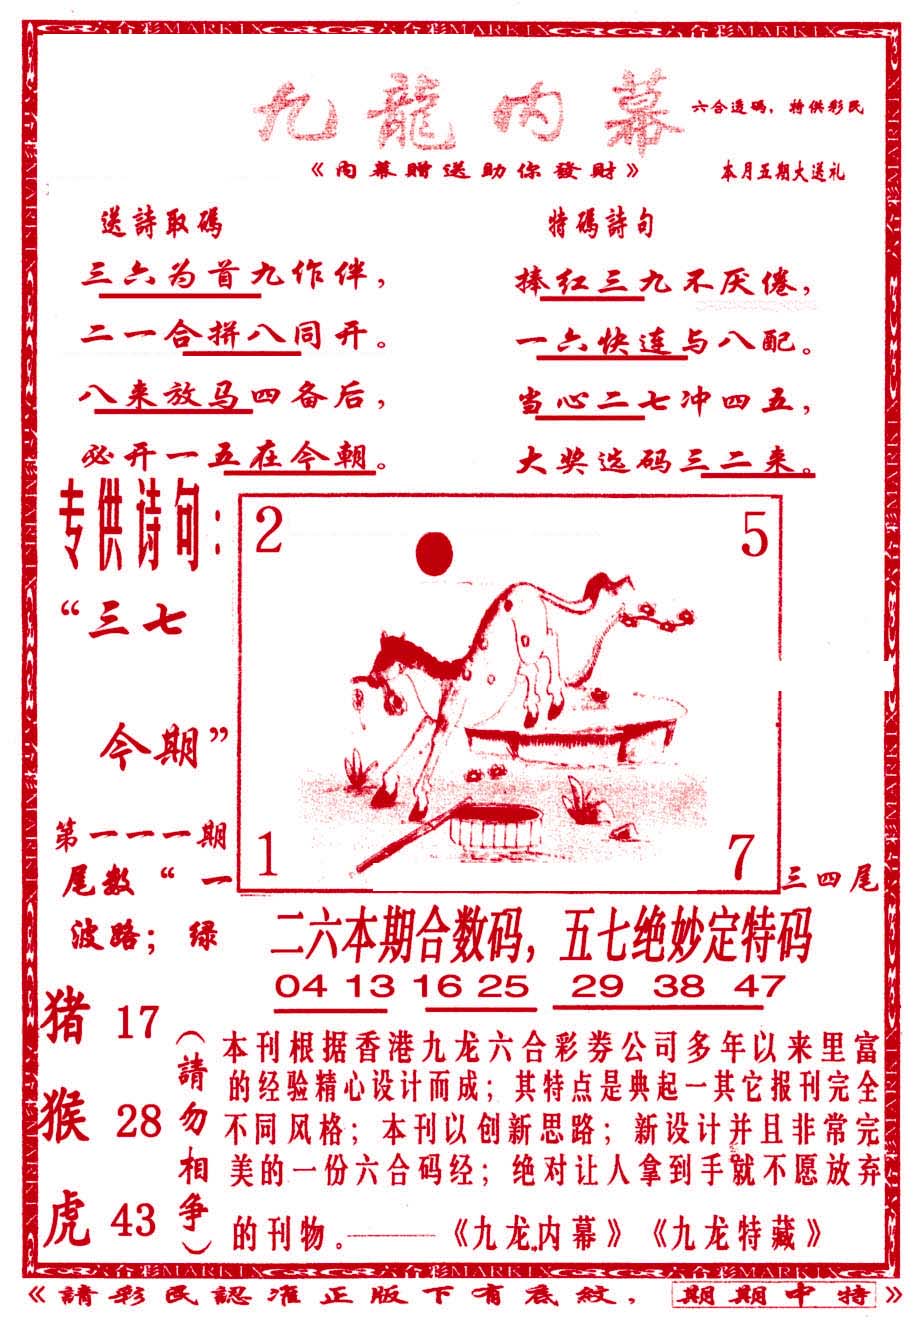 六合彩MARKIX
九龍内幕
六合透码，特供彩民
《内幕贈送助你發財》
本月五期大送礼
送詩取碼
三六为首九作伴，
二一合拼八同开。
八来放马四备后，
必开一五在今朝。
特碼詩句
捧红三九不厌倦，
一六快连与八配。
当心二七冲四五，
大奖选码三二来。
专供诗句：
“三七
今期”
第一一一期
2
5
1
7
尾数“一
三四尾
波路；绿
二六本期合数码，五七绝妙定特码
04 13 16 25 29 38 47
猪 17
猴 28
虎 43
（請勿相争）
本刊根据香港九龙六合彩券公司多年以来里富
的经验精心设计而成；其特点是典起一其它报刊完全
不同风格；本刊以创新思路；新设计并且非常完
美的一份六合码经；绝对让人拿到手就不愿放弃
的刊物。——《九龙内幕》《九龙特藏》
六合彩MARKIX
《請彩民認准正版下有底紋，期期中特》